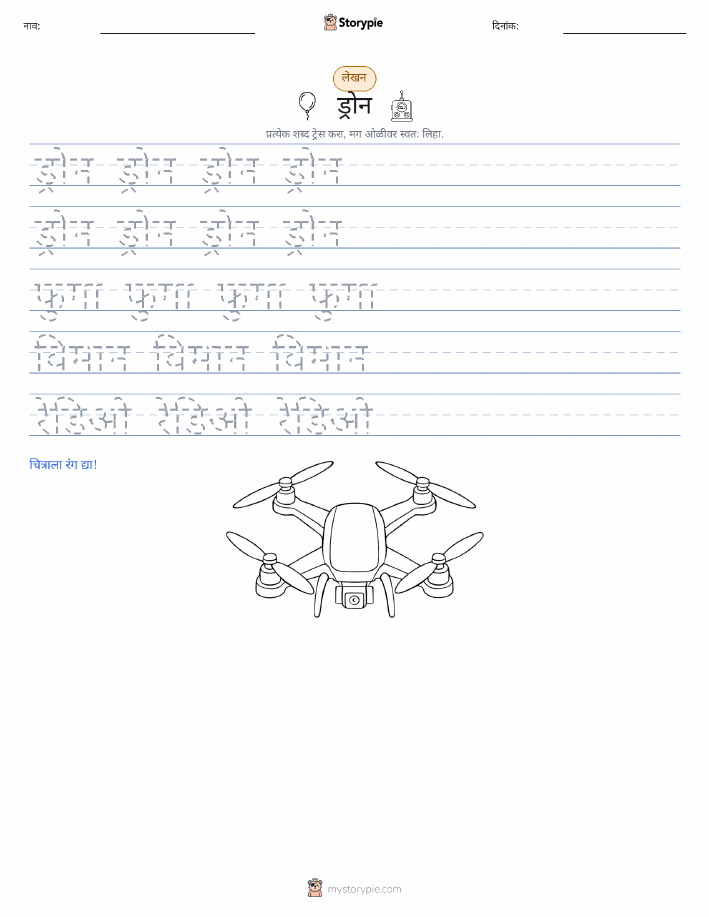 नाव: Storypie दिनांक:
लेखन
ड्रोन
प्रत्येक शब्द ट्रेस करा, मग ओळीवर स्वतः लिहा.
ड्रोन ड्रोन ड्रोन ड्रोन
ड्रोन ड्रोन ड्रोन ड्रोन
फुगा फुगा फुगा फुगा
विमान विमान विमान
रेडिओ रेडिओ रेडिओ
चित्राला रंग द्या!
mystorypie.com